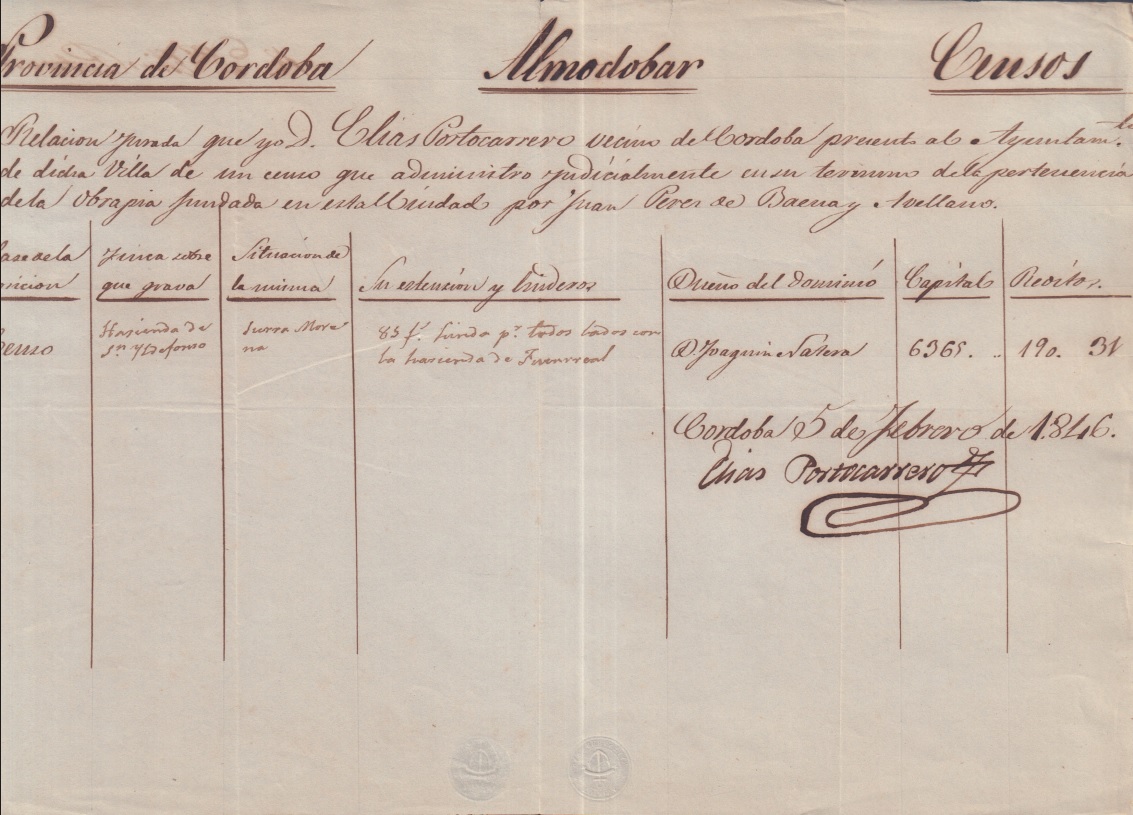 Provincia de Cordoba
Almodobar
Censos
Relacion Jurada que yo D. Elias Portocarrero vecino de Cordoba presento al Ayuntam.to
de dicha Villa de un censo que administro judicialmente en su termino de la pertenencia
de la Obrapia fundada en esta Ciudad por Juan Peres de Baena y Avellano.
ase de la
sicion
Finca sobre
que grava
Situacion de
la misma
Su estencion y linderos
Dueño del dominio
Capital
Reditos.
Censo
Hasienda de
Sn Yldefonso
Sierra More
na
83 f.s linda p.r todos lados con
la hasienda de Fuenrreal
D. Joaquin Natera
6365. ..
190. 31
Cordoba 5 de Febrero de 1.846.
Elias Portocarrero